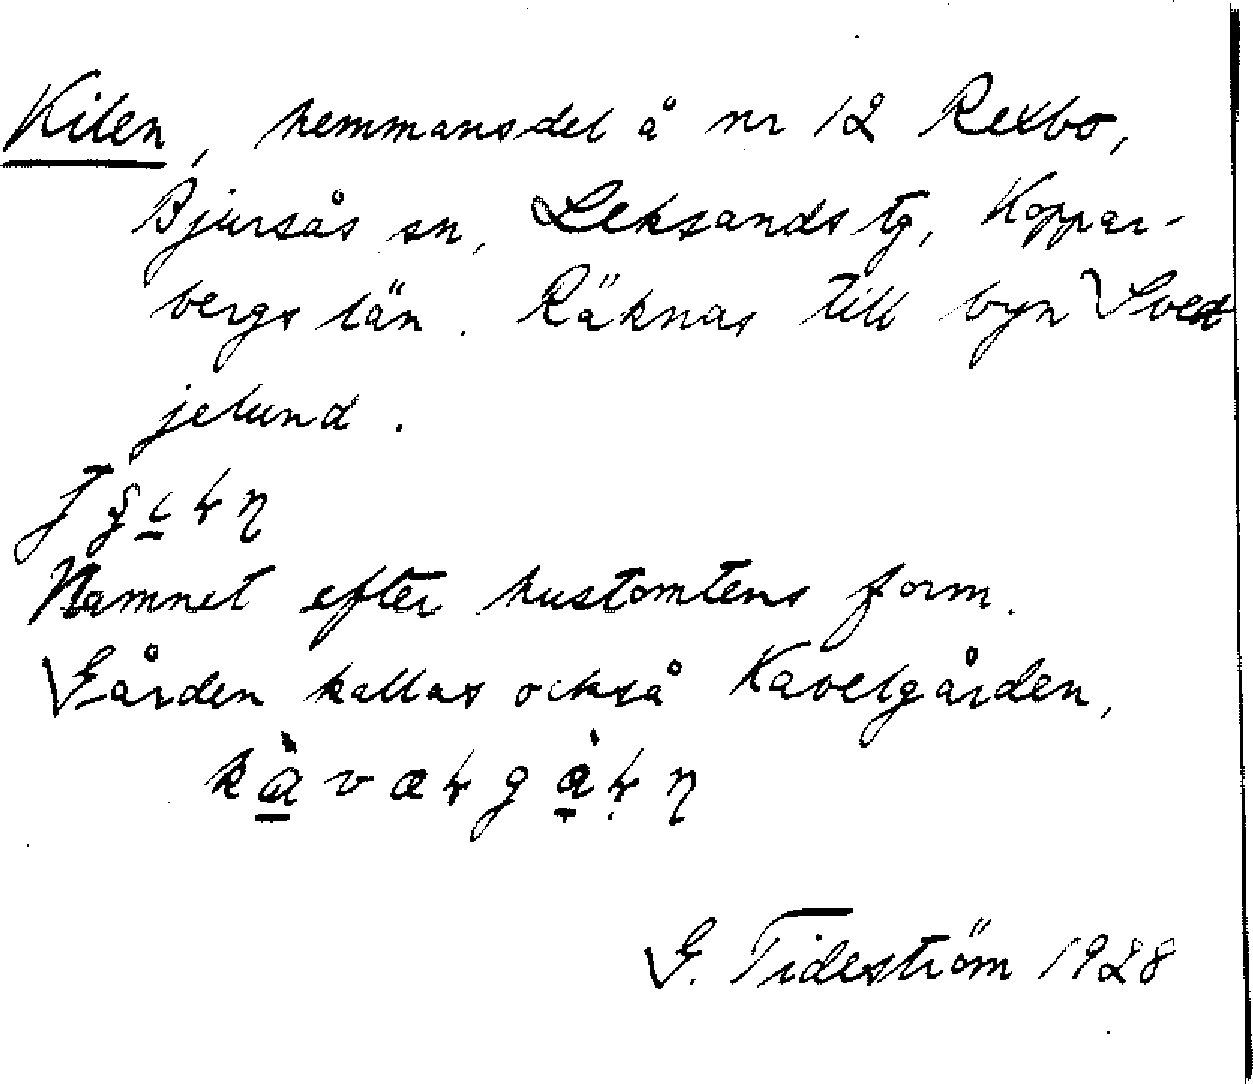 Kilen, hemmansdel å nr 12 Rexbo,
Bjursås sn, Leksands tg, Koppar-
bergs län. Räknas till byn Sved
jelund.
Namnet efter hustomtens form.
Gården kallas också Kavelgården,
G. Tideström 1928